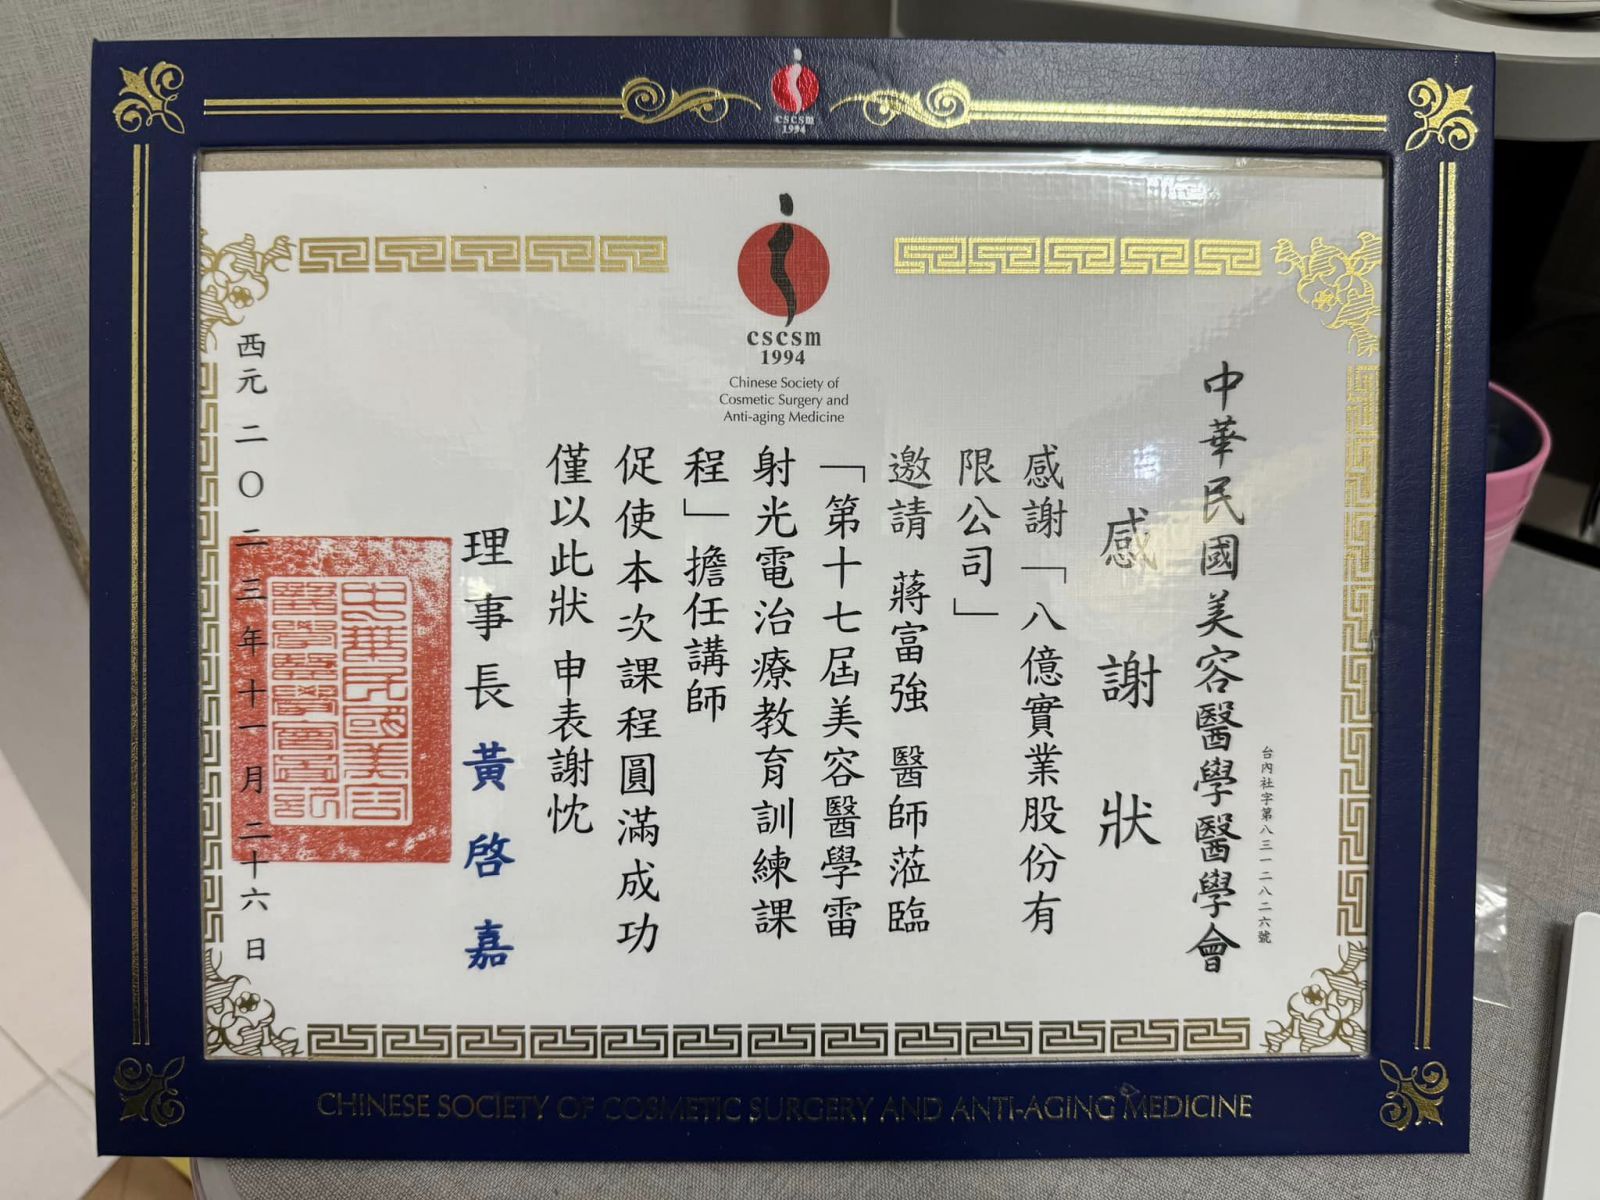 cscsm
1994
cscsm
1994
Chinese Society of
Cosmetic Surgery and
Anti-aging Medicine
中華民國美容醫學醫學會
台內社字第八三一二八二六號
感謝狀
感謝「八億實業股份有
限公司」
邀請 蔣富強 醫師蒞臨
「第十七屆美容醫學雷
射光電治療教育訓練課
程」擔任講師
促使本次課程圓滿成功
僅以此狀 申表謝忱
理事長 黃啓嘉
西元二〇二三年十一月二十六日
CHINESE SOCIETY OF COSMETIC SURGERY AND ANTI-AGING MEDICINE